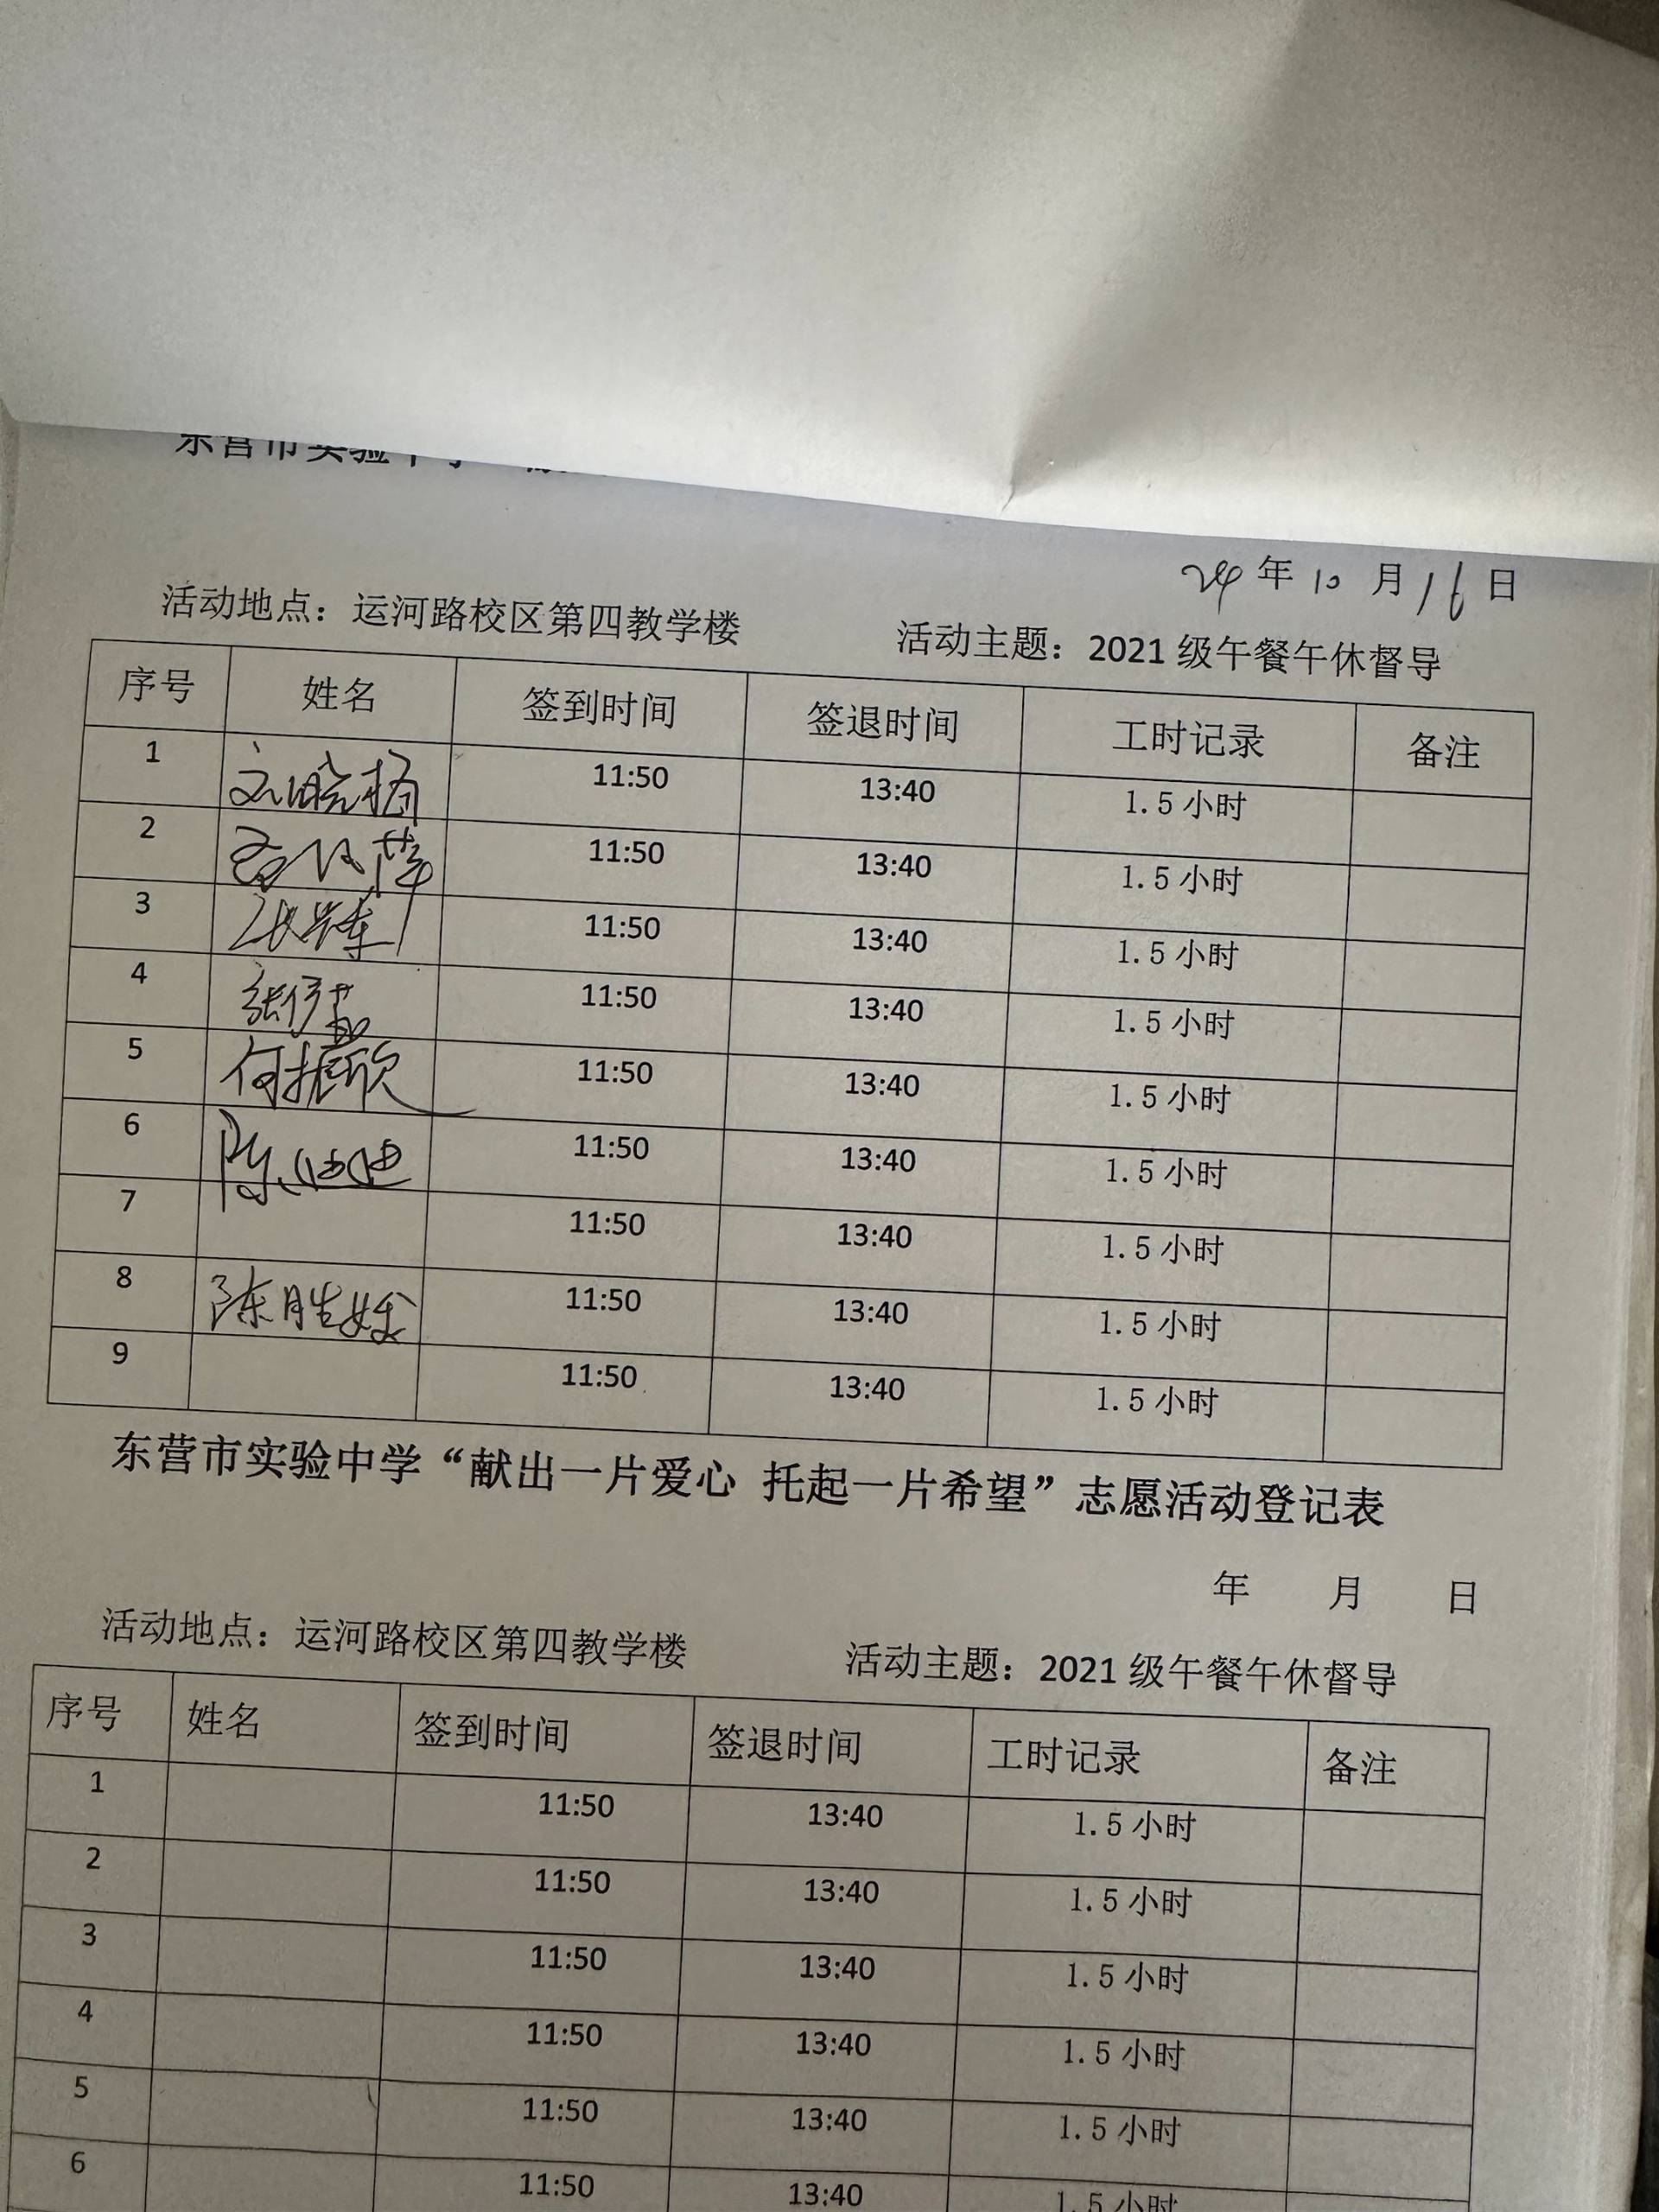 东营市实验中学
24年10月16日
活动地点：运河路校区第四教学楼 活动主题：2021级午餐午休督导
序号 姓名 签到时间 签退时间 工时记录 备注
1 刘晓杨 11:50 13:40 1.5小时
2 11:50 13:40 1.5小时
3 11:50 13:40 1.5小时
4 11:50 13:40 1.5小时
5 何振欣 11:50 13:40 1.5小时
6 11:50 13:40 1.5小时
7 11:50 13:40 1.5小时
8 陈胜媛 11:50 13:40 1.5小时
9 11:50 13:40 1.5小时
东营市实验中学“献出一片爱心 托起一片希望”志愿活动登记表
年 月 日
活动地点：运河路校区第四教学楼 活动主题：2021级午餐午休督导
序号 姓名 签到时间 签退时间 工时记录 备注
1 11:50 13:40 1.5小时
2 11:50 13:40 1.5小时
3 11:50 13:40 1.5小时
4 11:50 13:40 1.5小时
5 11:50 13:40 1.5小时
6 11:50 13:40 1.5小时